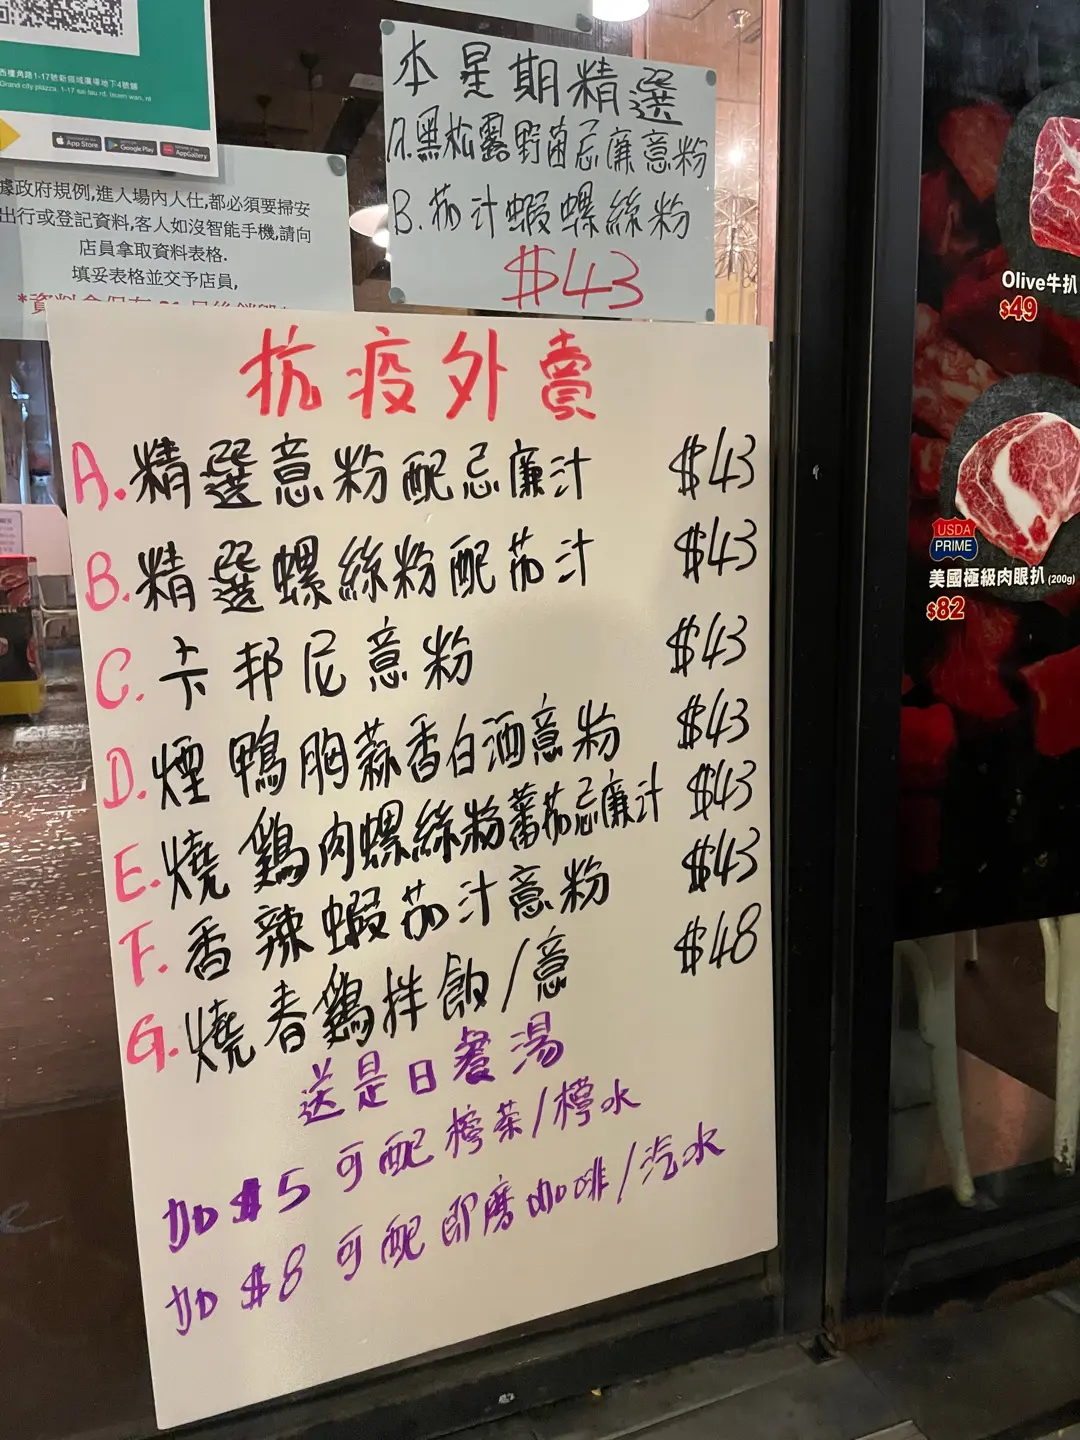 西樓角路1-17號新領域廣場地下4號舖
Grand city plazza, 1-17 sai lau rd, tsuen wan, nt
App Store
Google Play
AppGallery
據政府規例,進入場內人仕,都必須要掃安
出行或登記資料,客人如沒智能手機,請向
店員拿取資料表格.
填妥表格並交予店員,
本星期精選
A.黑松露野菌忌廉意粉
B.茄汁蝦螺絲粉
$43
抗疫外賣
A.精選意粉配忌廉汁 $43
B.精選螺絲粉配茄汁 $43
C.卡邦尼意粉 $43
D.煙鴨胸蒜香白酒意粉 $43
E.燒鷄肉螺絲粉蕃茄忌廉汁 $43
F.香辣蝦茄汁意粉 $43
G.燒春鷄拌飯/意 $48
送是日餐湯
加$5可配檸茶/檸水
加$8可配即磨咖啡/汽水
Olive牛扒
$49
USDA
PRIME
美國極級肉眼扒(200g)
$82